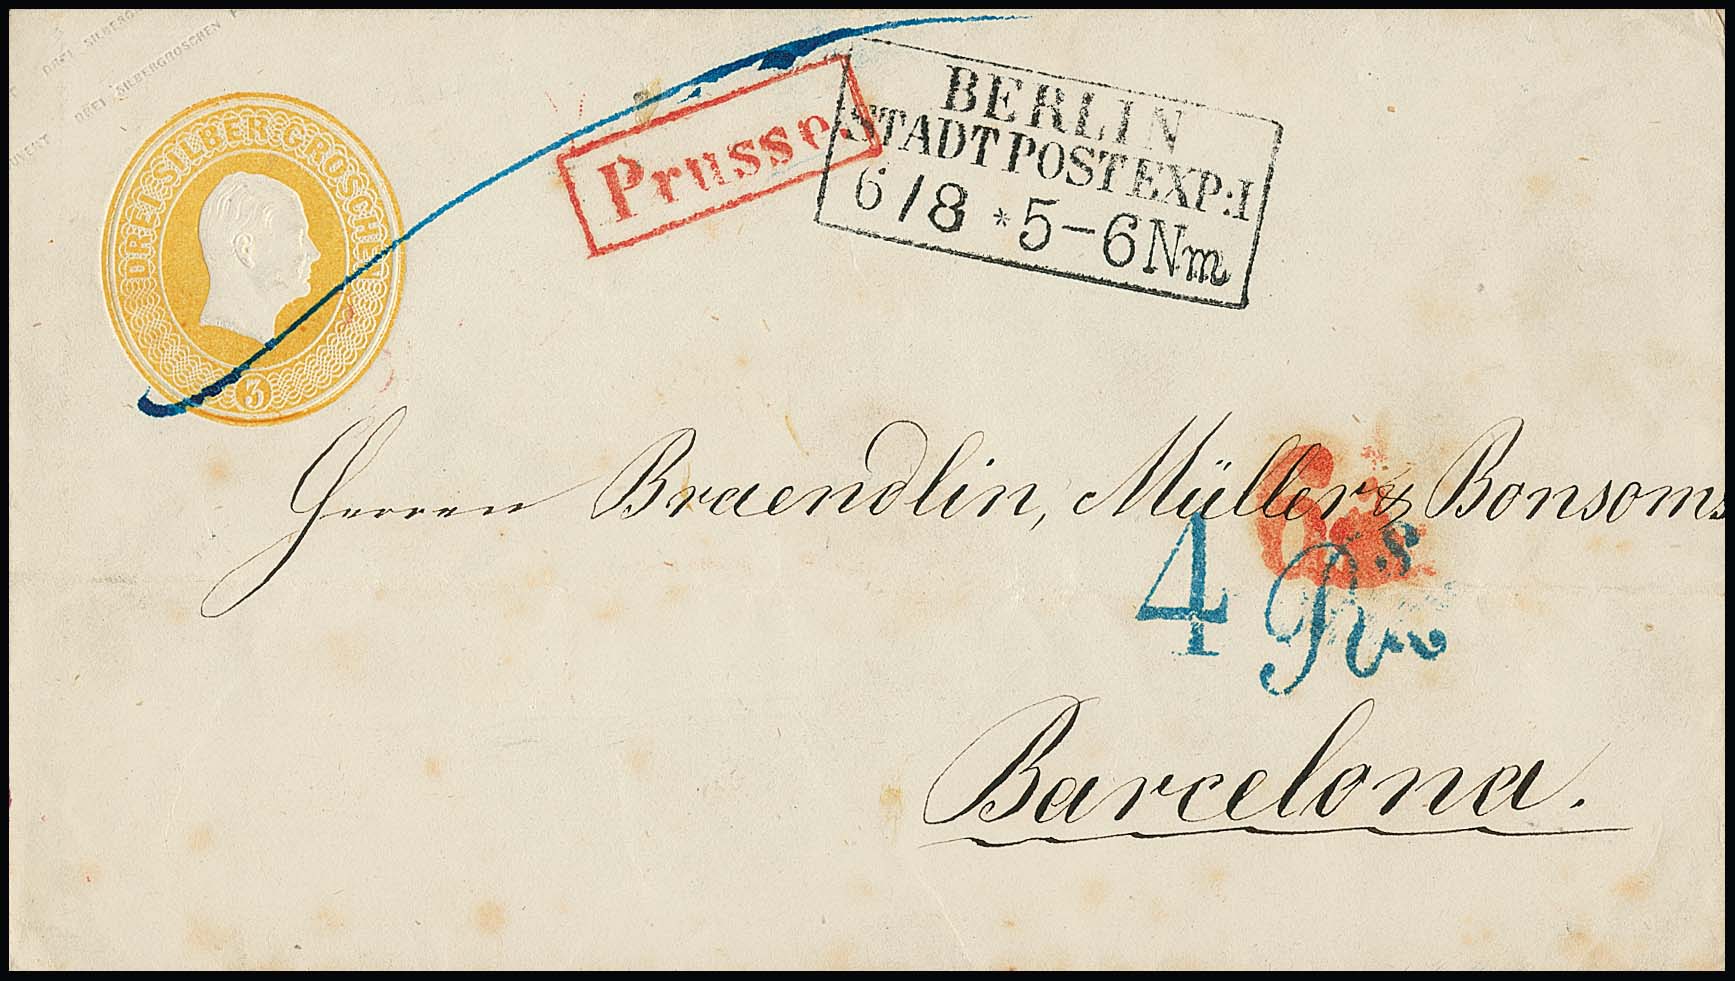 DREI SILBERGROSCHEN
DREI SILBER-GROSCHEN
3
Prusse
BERLIN
STADTPOST EXP:I
6/8 * 5-6 Nm
Herren Braendlin, Müller & Bonsoms
4 Rs
Barcelona.